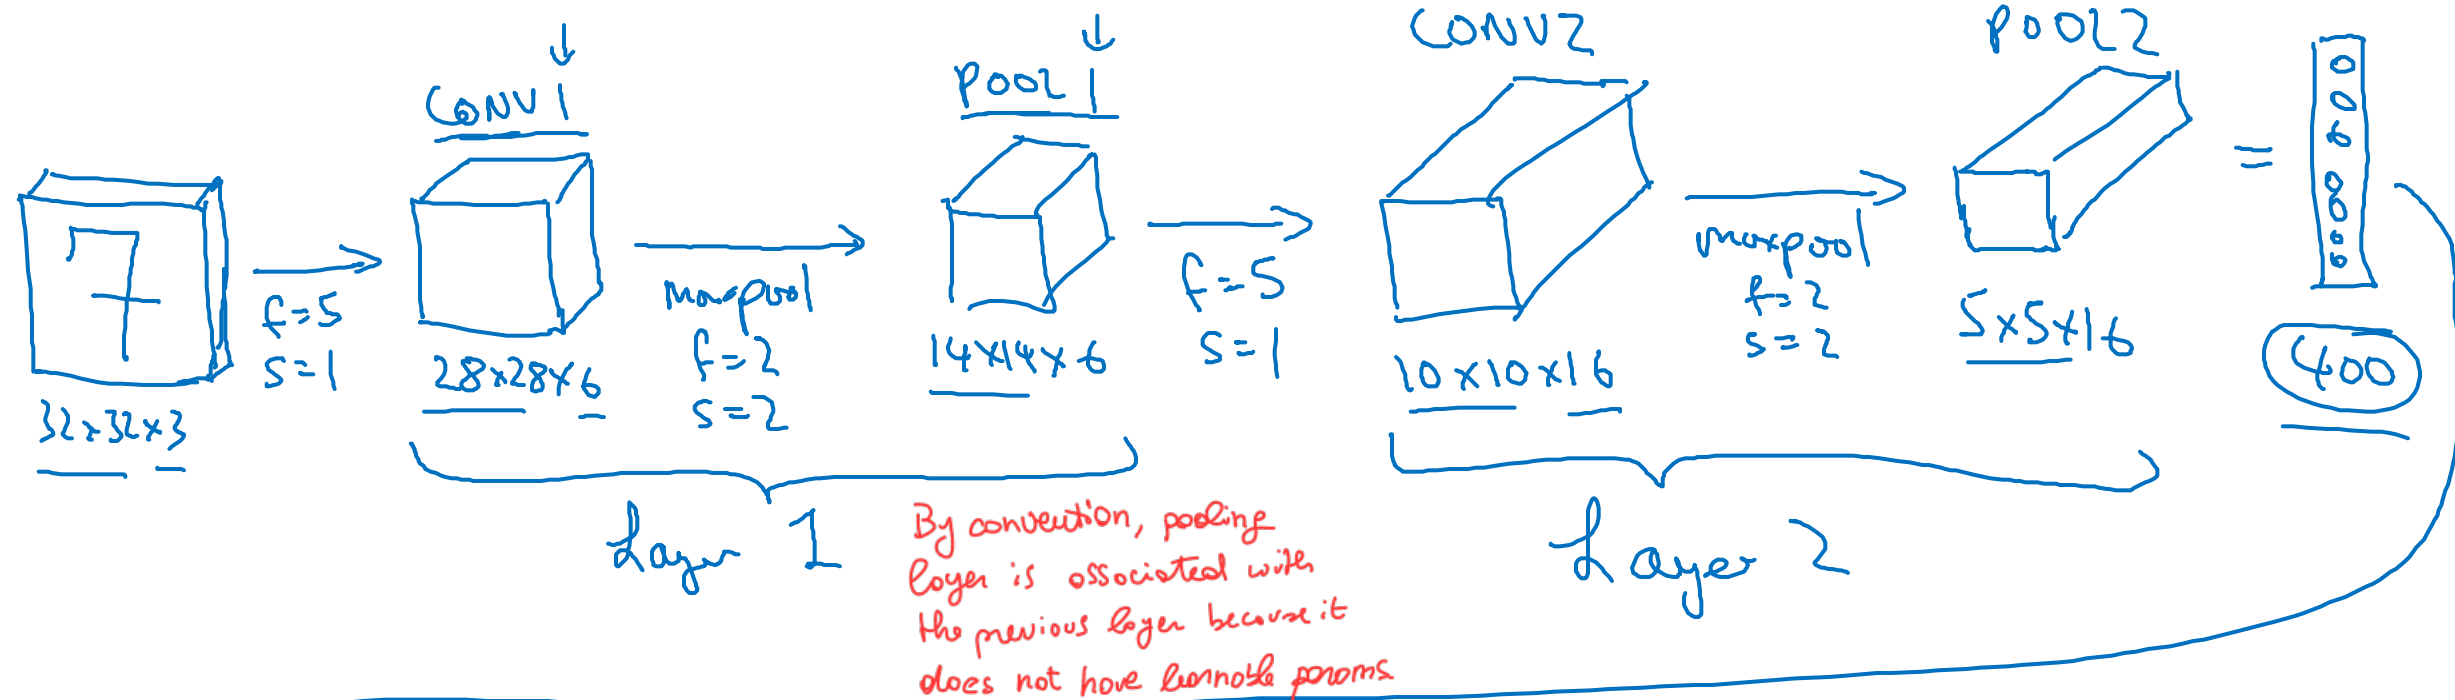 7
32x32x3
f=5
s=1
CONV1
28x28x6
maxpool
f=2
s=2
POOL1
14x14x6
Layer 1
f=5
s=1
CONV2
10x10x16
maxpool
f=2
s=2
POOL2
5x5x16
Layer 2
=
400
By convention, pooling
layer is associated with
the previous layer because it
does not have learnable params